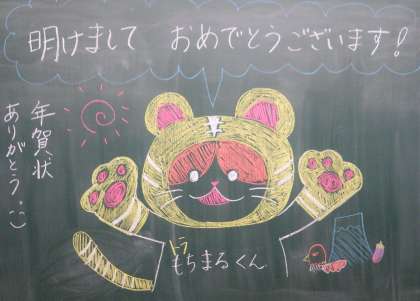 明けまして おめでとうございます!
年賀状
ありがとう。:)
トラ
もちまるくん